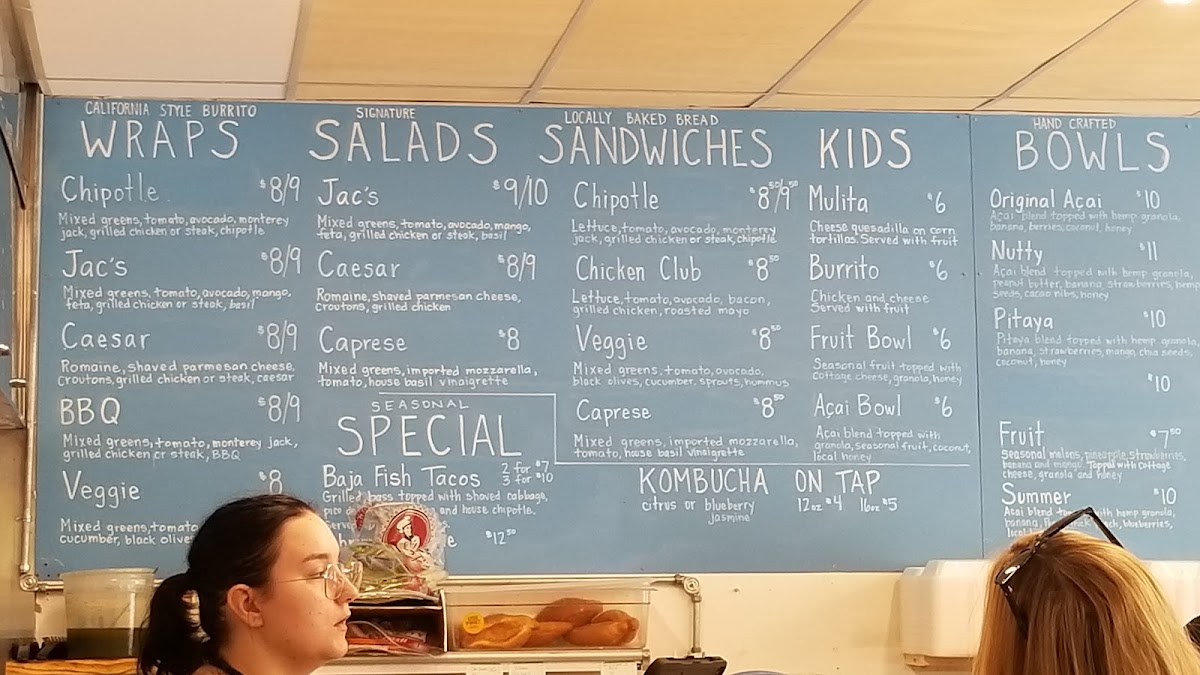 CALIFORNIA STYLE BURRITO
WRAPS
Chipotle $8/9
Mixed greens, tomato, avocado, monterey
jack, grilled chicken or steak, chipotle
Jac's $8/9
Mixed greens, tomato, avocado, mango,
feta, grilled chicken or steak, basil
Caesar $8/9
Romaine, shaved parmesan cheese,
croutons, grilled chicken or steak, caesar
BBQ $8/9
Mixed greens, tomato, monterey jack,
grilled chicken or steak, BBQ
Veggie $8
Mixed greens, tomato
cucumber, black olives
SIGNATURE
SALADS
Jac's $9/10
Mixed greens, tomato, avocado, mango,
feta, grilled chicken or steak, basil
Caesar $8/9
Romaine, shaved parmesan cheese,
croutons, grilled chicken
Caprese $8
Mixed greens, imported mozzarella,
tomato, house basil vinaigrette
SEASONAL
SPECIAL
Baja Fish Tacos 2 for $7
3 for $10
Grilled bass topped with shaved cabbage,
pico and house chipotle.
$12.50
LOCALLY BAKED BREAD
SANDWICHES
Chipotle $8.50/9.50
Lettuce, tomato, avocado, monterey
jack, grilled chicken or steak, chipotle
Chicken Club $8.50
Lettuce, tomato, avocado, bacon,
grilled chicken, roasted mayo
Veggie $8.50
Mixed greens, tomato, avocado,
black olives, cucumber, sprouts, hummus
Caprese $8.50
Mixed greens, imported mozzarella,
tomato, house basil vinaigrette
KIDS
Mulita $6
Cheese quesadilla on corn
tortillas. Served with fruit
Burrito $6
Chicken and cheese
Served with fruit
Fruit Bowl $6
Seasonal fruit topped with
cottage cheese, granola, honey
Açai Bowl $6
Açai blend topped with
granola, seasonal fruit, coconut,
local honey
KOMBUCHA ON TAP
citrus or blueberry 12oz $4 16oz $5
jasmine
HAND CRAFTED
BOWLS
Original Acai $10
Açai blend topped with hemp granola,
banana, berries, coconut, honey
Nutty $11
Açai blend topped with hemp granola,
peanut butter, banana, strawberries, hemp
seeds, cacao nibs, honey
Pitaya $10
Pitaya blend topped with hemp granola,
banana, strawberries, mango, chia seeds,
coconut, honey
$10
Fruit $7.50
seasonal melons, pineapple, strawberries,
banana and mango. Topped with cottage
cheese, granola and honey
Summer $10
Açai blend topped with hemp granola,
banana, blueberries,